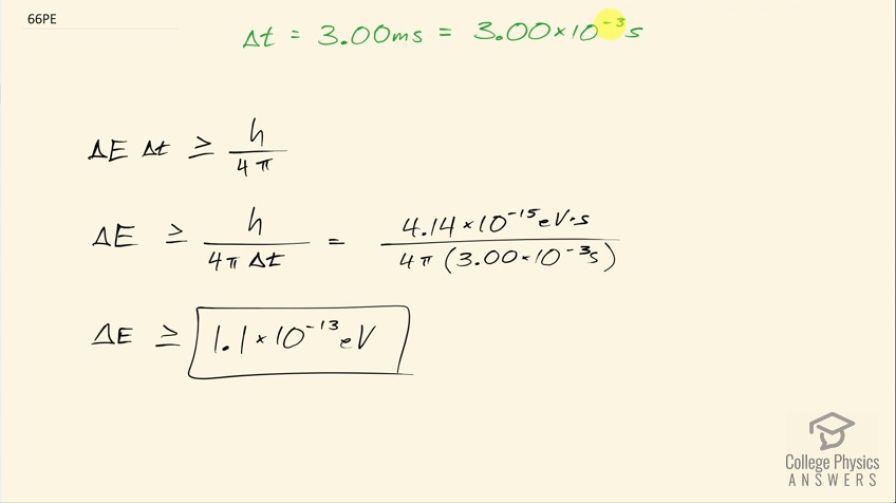 66PE
Δt = 3.00ms = 3.00×10⁻³s
ΔE Δt ≥ h/4π
ΔE ≥ h/4πΔt = 4.14×10⁻¹⁵eV·s/4π(3.00×10⁻³s)
ΔE ≥ 1.1×10⁻¹³eV
College Physics
ANSWERS